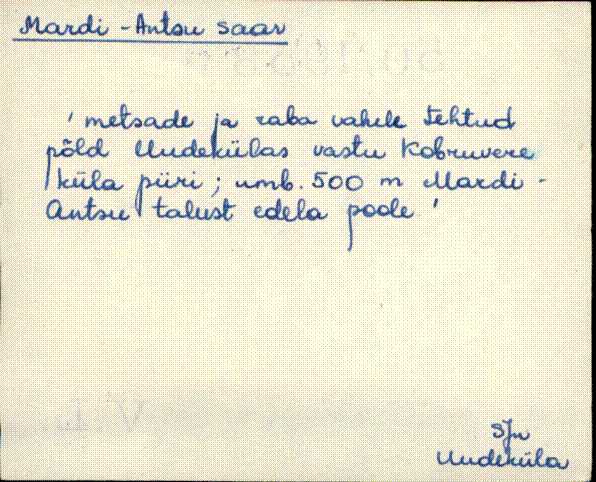 Mardi - Antsu saar
' metsade ja raba vahele tehtud
põld Uudekülas vastu Kobruvere
küla piiri; umb. 500 m Mardi -
Antsu talust edela poole '
SJn
Uudeküla